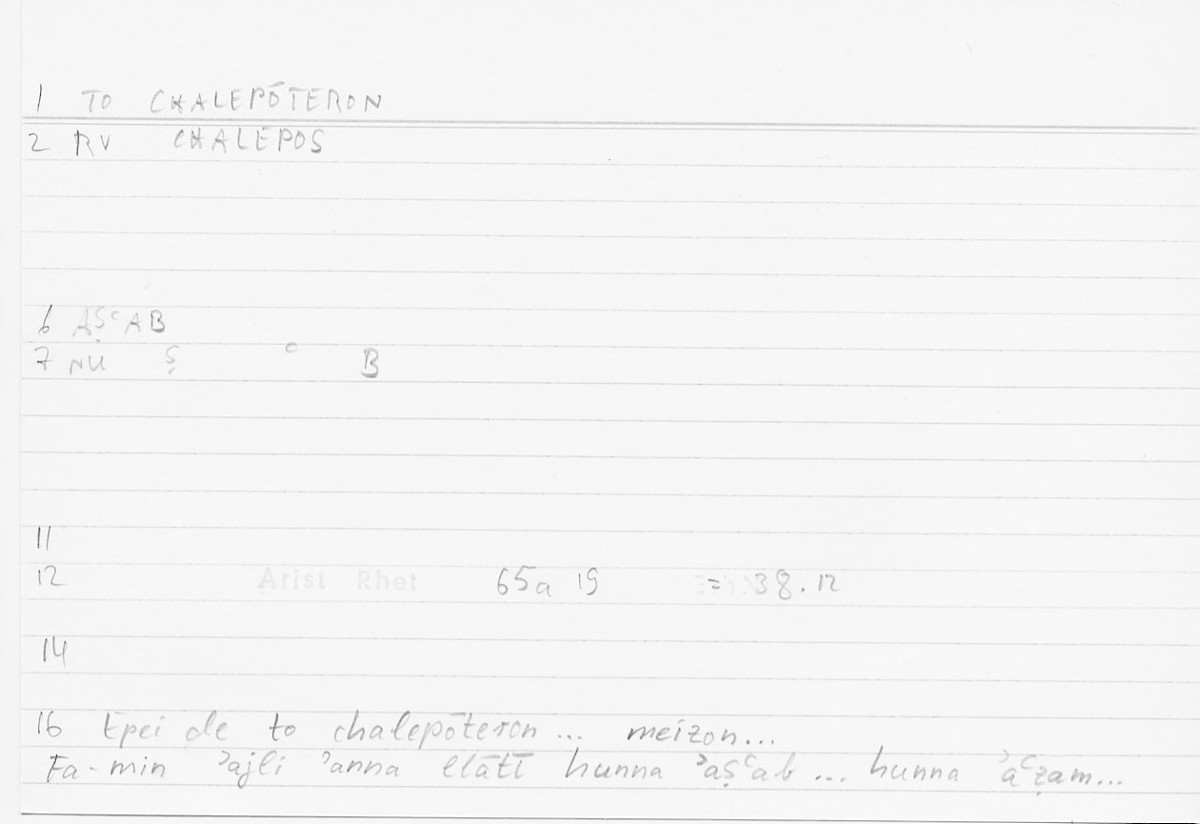 1 TO CHALEPŌTERON
2 RV CHALEPOS
6 AṢʿAB
7 NU Ṣ ʿ B
11
12 Arist Rhet 65a 19 = 38.12
14
16 Epei de to chalepōteron ... meizon...
Fa-min ʾajli ʾanna llātī hunna ʾaṣʿab ... hunna ʾaʿẓam...